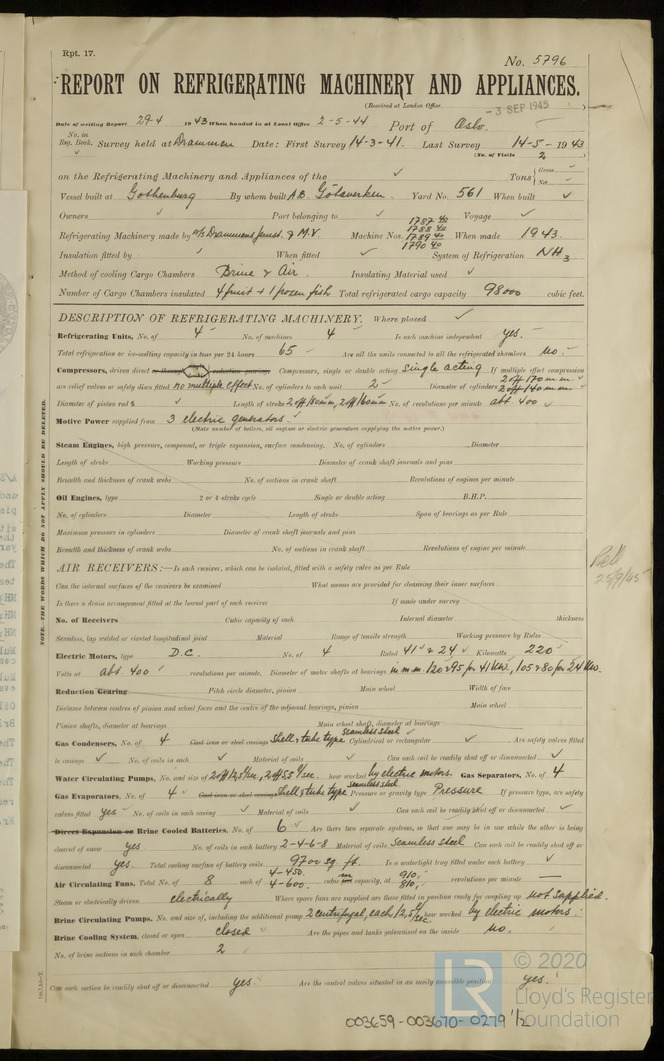 Rpt. 17.
No. 5796
REPORT ON REFRIGERATING MACHINERY AND APPLIANCES.
(Received at London Office - 3 SEP 1945 )
Date of writing Report 29-4 1943 When handed in at Local Office 2-5-44 Port of Oslo.
No. in Reg. Book. Survey held at Drammen Date: First Survey 14-3-41. Last Survey 14-5-1943
(No. of Visits 2 )
on the Refrigerating Machinery and Appliances of the Tons { Gross Net
Vessel built at Gothenburg By whom built AB. Götaverken Yard No. 561 When built
Owners Port belonging to Voyage
Refrigerating Machinery made by Drammens & M.V. Machine Nos. 1787 40 1788 40 1789 40 1790 40 When made 1943.
Insulation fitted by When fitted System of Refrigeration NH3
Method of cooling Cargo Chambers Brine & Air. Insulating Material used
Number of Cargo Chambers insulated 4 fruit + 1 frozen fish Total refrigerated cargo capacity 98000 cubic feet.
DESCRIPTION OF REFRIGERATING MACHINERY. Where placed
Refrigerating Units, No. of 4 No. of machines 4 Is each machine independent yes.
Total refrigeration or ice-melting capacity in tons per 24 hours 65 Are all the units connected to all the refrigerated chambers no.
Compressors, driven direct or through reduction gearing. Compressors, single or double acting single acting If multiple effect compression
are relief valves or safety discs fitted no multiple effect No. of cylinders to each unit 2 Diameter of cylinders 2 off 170 mm 2 off 140 mm
Diameter of piston rods Length of stroke 2 off 180mm, 2 off 160mm No. of revolutions per minute abt. 400
Motive Power supplied from 3 electric generators.
(State number of boilers, oil engines or electric generators supplying the motive power.)
Steam Engines, high pressure, compound, or triple expansion, surface condensing. No. of cylinders Diameter
Length of stroke Working pressure Diameter of crank shaft journals and pins
Breadth and thickness of crank webs No. of sections in crank shaft Revolutions of engines per minute
Oil Engines, type 2 or 4 stroke cycle Single or double acting B.H.P.
No. of cylinders Diameter Length of stroke Span of bearings as per Rule
Maximum pressure in cylinders Diameter of crank shaft journals and pins
Breadth and thickness of crank webs No. of sections in crank shaft Revolutions of engine per minute
AIR RECEIVERS:—Is each receiver, which can be isolated, fitted with a safety valve as per Rule
Can the internal surfaces of the receivers be examined What means are provided for cleansing their inner surfaces
Is there a drain arrangement fitted at the lowest part of each receiver If made under survey
No. of Receivers Cubic capacity of each Internal diameter thickness
Seamless, lap welded or riveted longitudinal joint Material Range of tensile strength Working pressure by Rules
Electric Motors, type D.C. No. of 4 Rated 41 & 24 Kilowatts 220
Volts at abt 400 revolutions per minute. Diameter of motor shafts at bearings in mm 120 & 95 for 41 Kw., 105 & 80 for 24 Kw.
Reduction Gearing Pitch circle diameter, pinion Main wheel Width of face
Distance between centres of pinion and wheel faces and the centre of the adjacent bearings, pinion Main wheel
Pinion shafts, diameter at bearings Main wheel shaft, diameter at bearings
Gas Condensers, No. of 4 Cast iron or steel casings Shell & tube type seamless steel Cylindrical or rectangular Are safety valves fitted
to casings No. of coils in each Material of coils Can each coil be readily shut off or disconnected
Water Circulating Pumps, No. and size of 2 off 12,5 l/sec, 2 off 5,5 l/sec. how worked by electric motors. Gas Separators, No. of 4
Gas Evaporators, No. of 4 Cast iron or steel casings Shell & tube type seamless steel Pressure or gravity type Pressure If pressure type, are safety
valves fitted yes No. of coils in each casing Material of coils Can each coil be readily shut off or disconnected
Direct Expansion or Brine Cooled Batteries, No. of 6 Are there two separate systems, so that one may be in use while the other is being
cleared of snow yes No. of coils in each battery 2-4-6-8 Material of coils seamless steel Can each coil be readily shut off or
disconnected yes. Total cooling surface of battery coils 9700 sq. ft. Is a watertight tray fitted under each battery
Air Circulating Fans, Total No. of 8 each of 4-450. 4-600. cubic m capacity, at 910, 810, revolutions per minute
Steam or electrically driven electrically Where spare fans are supplied are these fitted in position ready for coupling up not supplied.
Brine Circulating Pumps, No. and size of, including the additional pump 2 centrifugal, each 12,5 l/sec how worked by electric motors.
Brine Cooling System, closed or open closed Are the pipes and tanks galvanised on the inside no.
No. of brine sections in each chamber 2
Can each section be readily shut off or disconnected yes. Are the control valves situated in an easily accessible position yes.
NOTE.—THE WORDS WHICH DO NOT APPLY SHOULD BE DELETED.
25/9/45
© 2020
Lloyd's Register
Foundation
003659-003670-0279 1/2